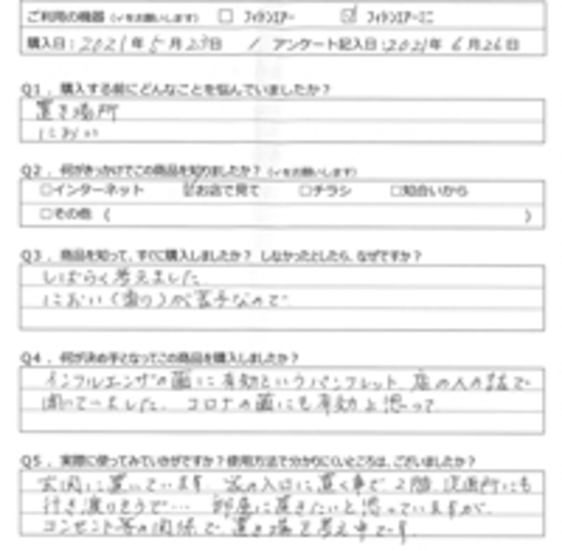 ご利用の機器（✓をお願いします） □ フィトンエアー ☑ フィトンエアーミニ
購入日：2021年5月23日 ／ アンケート記入日：2021年6月26日
Q1．購入する前にどんなことを悩んでいましたか？
置き場所
におい
Q2．何がきっかけでこの商品を知りましたか？（✓をお願いします）
□インターネット ☑お店で見て □チラシ □知合いから
□その他（ ）
Q3．商品を知って、すぐに購入しましたか？しなかったとしたら、なぜですか？
しばらく考えました
におい（香り）が苦手なので
Q4．何が決め手となってこの商品を購入しましたか？
インフルエンザの菌に有効というパンフレット、店の人の話で
聞いてました。コロナの菌にも有効と思って
Q5．実際に使ってみていかがですか？使用方法で分かりにくいところは、ございましたか？
玄関に置いています。家の入口に置く事で、2階、洗面所にも
行き渡りそうで… 部屋に置きたいと思っていますが、
コンセント等の関係で、置き場を考え中です。